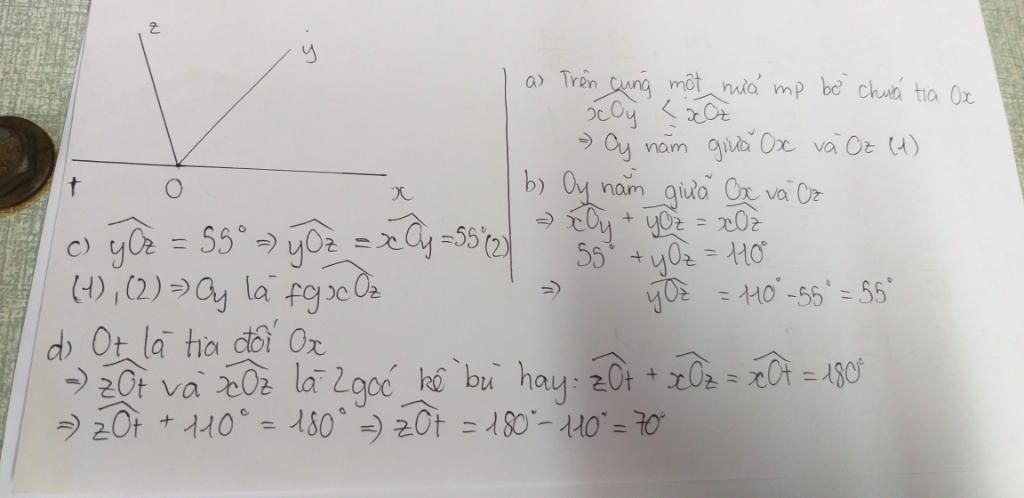 z
y
t
O
x
a) Trên cùng một nửa mp bờ chứa tia Ox
xOy < xOz
⇒ Oy nằm giữa Ox và Oz (1)
b) Oy nằm giữa Ox và Oz
⇒ xOy + yOz = xOz
55° + yOz = 110°
⇒ yOz = 110° - 55° = 55°
c) yOz = 55° ⇒ yOz = xOy = 55° (2)
(1), (2) ⇒ Oy là fg xOz
d) Ot là tia đối Ox
⇒ zOt và xOz là 2 góc kề bù hay: zOt + xOz = xOt = 180°
⇒ zOt + 110° = 180° ⇒ zOt = 180° - 110° = 70°